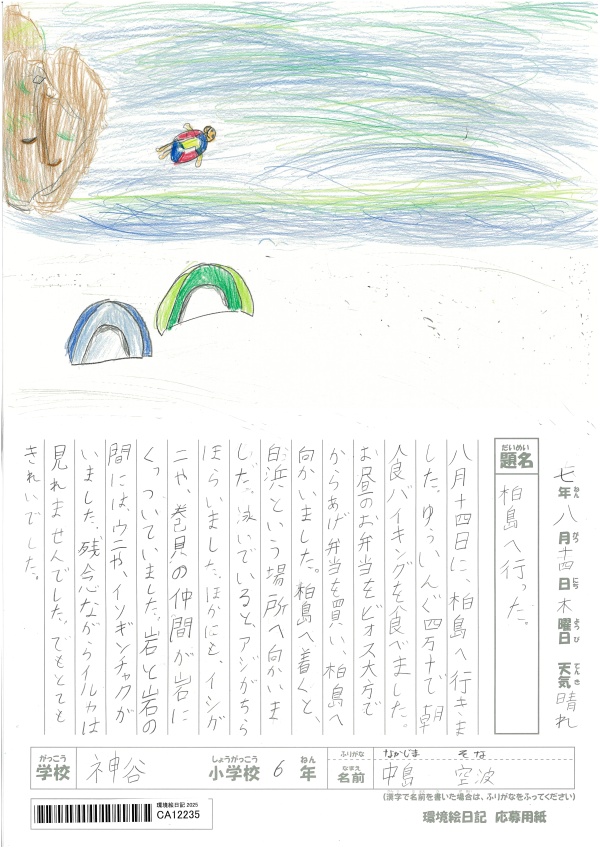 七年八月十四日木曜日 天気晴れ
ねん がつ にち ようび てんき
だいめい
題名
柏島へ行った。
八月十四日に、柏島へ行きま
した。ゆういんぐ四万十で朝
食バイキングを食べました。
お昼のお弁当をビオス大方で
からあげ弁当を買い、柏島へ
向かいました。柏島へ着くと、
白浜という場所へ向かいま
した。泳いでいると、アジがちら
ほらいました。ほかにも、イシダ
ニや、巻貝の仲間が岩に
くっついていました。岩と岩の
間には、ウニや、イソギンチャクが
いました。残念ながらイルカは
見れませんでした。でもとても
きれいでした。
がっこう しょうがっこう ねん
学校 神谷 小学校 6年
ふりがな なかじま そな
なまえ
名前 中島 空波
(漢字で名前を書いた場合は、ふりがなをふってください)
環境絵日記 2025
CA12235
環境絵日記 応募用紙